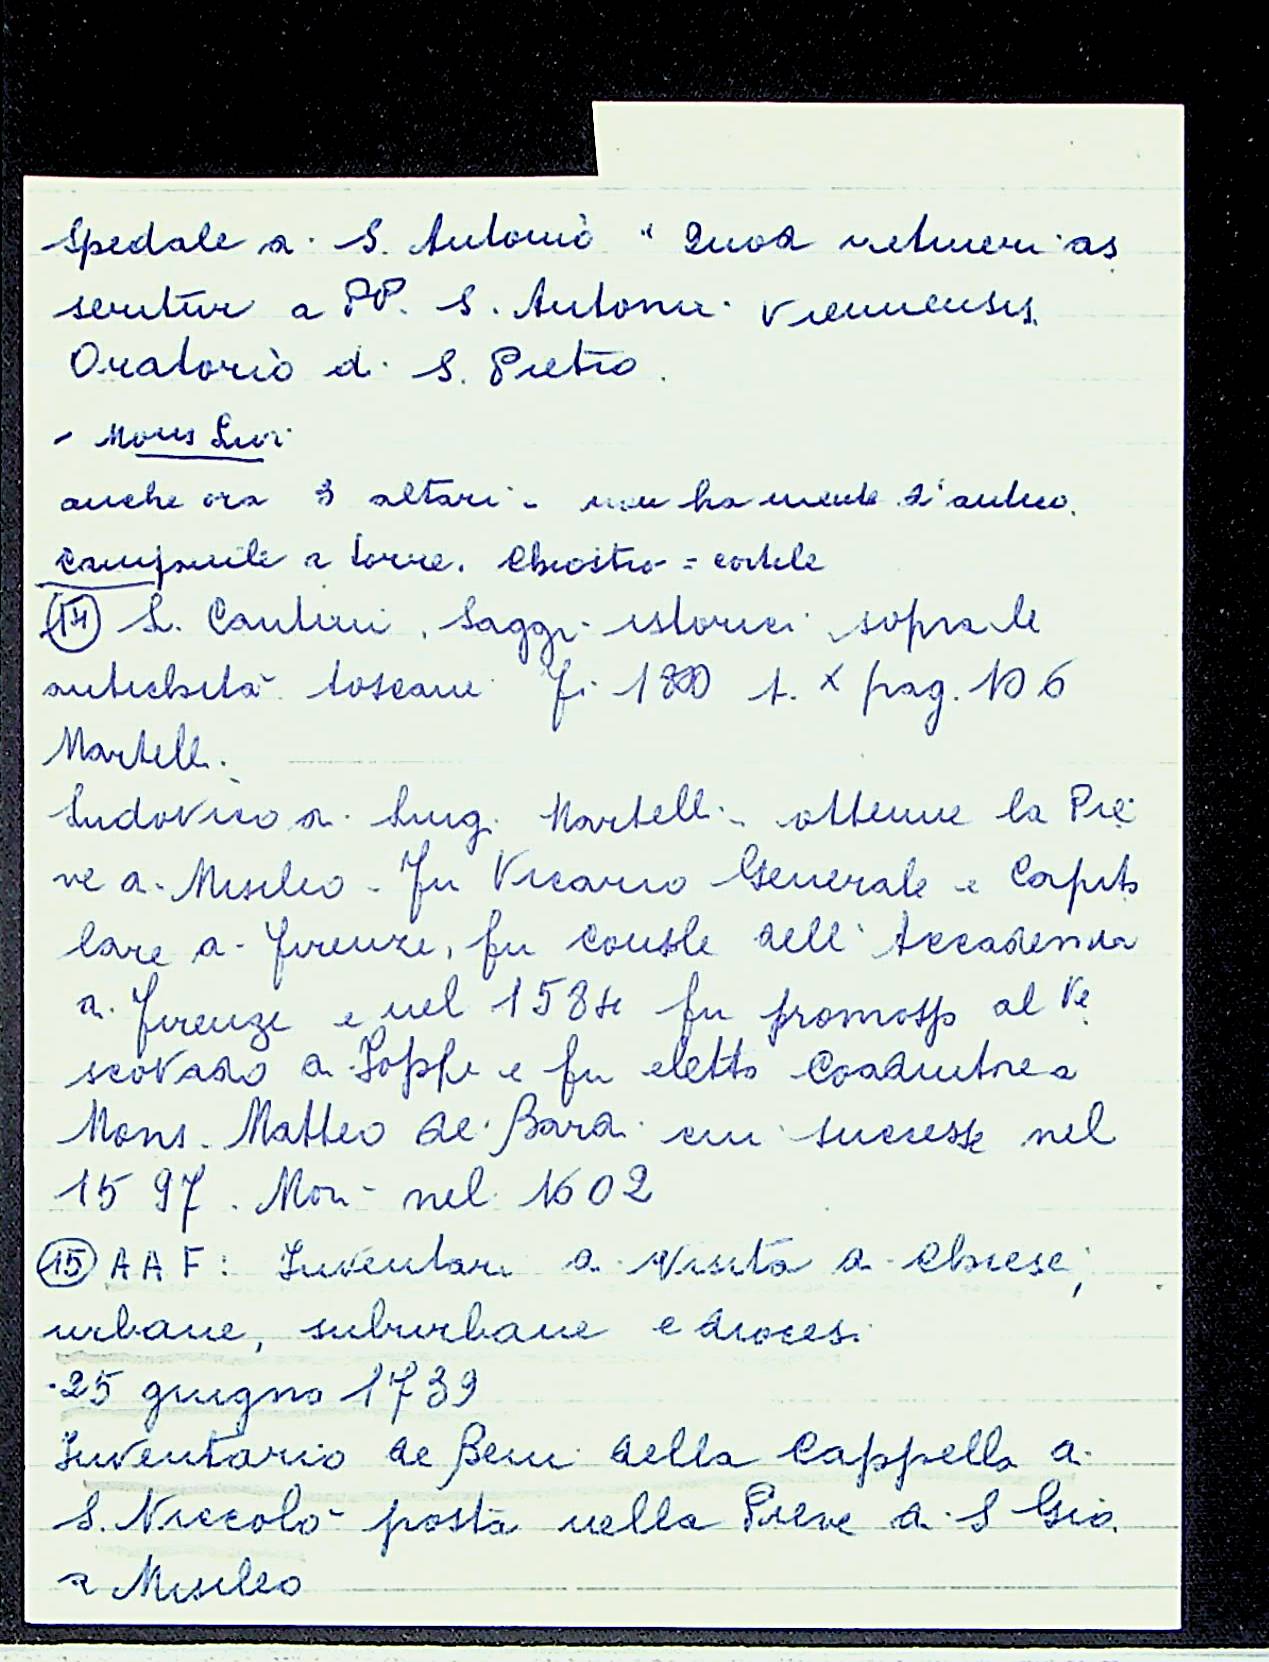 Spedale di S. Antonio "Quod retineri as
seritur a PP. S. Antonii Viennensis.
Oratorio di S. Pietro.
- Mons
anche ora 3 altari - non ha niente d'antico.
Campanile a torre. Chiostro = cortile
(14) L. Cantini, Saggi istorici sopra le
antichità toscane Fi 1800 t. X pag. 106
Martelli.
Ludovico di Luigi Martelli - ottenne la Pie
ve di Misileo - Fu Vicario Generale e Capito
lare di Firenze, fu console dell'Accademia
di Firenze e nel 1584 fu promosso al Ve
scovado di Joppe e fu eletto Coadiutore a
Mons. Matteo de Bardi cui successe nel
1597. Morì nel 1602
(15) AAF: Inventari di Visita di Chiese,
urbane, suburbane e diocesi
25 giugno 1739
Inventario de Beni della Cappella di
S. Niccolò posta nella Pieve di S Gio.
a Misileo